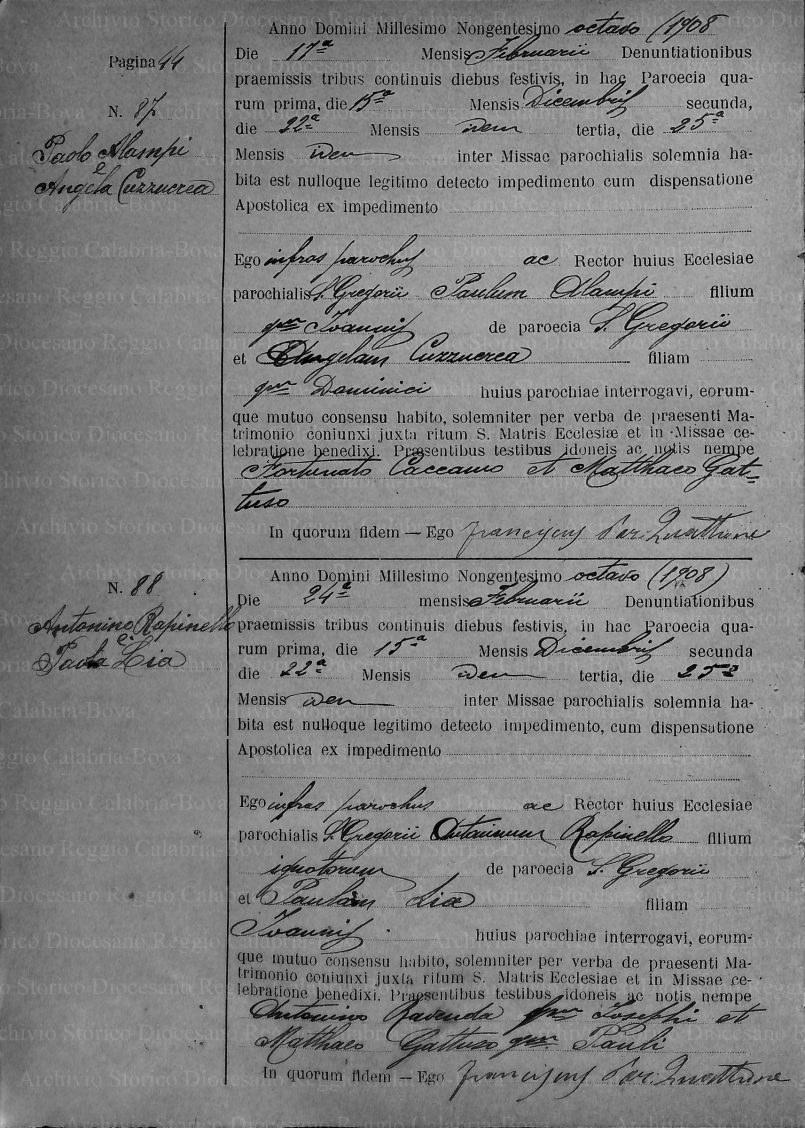 Pagina 44
N. 87
Paolo Alampi
e
Angela Cuzzucrea
Anno Domini Millesimo Nongentesimo octavo (1908
Die 17ª Mensis Februarii Denuntiationibus
praemissis tribus continuis diebus festivis, in hac Paroecia qua-
rum prima, die 15ª Mensis Dicembris secunda,
die 22ª Mensis idem tertia, die 25ª
Mensis idem inter Missae parochialis solemnia ha-
bita est nulloque legitimo detecto impedimento cum dispensatione
Apostolica ex impedimento
Ego infras parochus ac Rector huius Ecclesiae
parochialis S. Gregorii Paulum Alampi filium
qm Ioannis de paroecia S. Gregorii
et Angelam Cuzzucrea filiam
qm Dominici huius parochiae interrogavi, eorum-
que mutuo consensu habito, solemniter per verba de praesenti Ma-
trimonio coniunxi juxta ritum S. Matris Ecclesiæ et in Missae ce-
lebratione benedixi. Præsentibus testibus idoneis ac notis nempe
Fortunato Caccamo et Matthaeo Gat-
tuso
In quorum fidem — Ego franciscus Par. Quattrone
N. 88
Antonino Rapinello
e
Paola Lia
Anno Domini Millesimo Nongentesimo octavo (1908)
Die 24ª mensis Februarii Denuntiationibus
praemissis tribus continuis diebus festivis, in hac Paroecia qua-
rum prima, die 15ª Mensis Dicembris secunda
die 22ª Mensis idem tertia, die 25ª
Mensis idem inter Missae parochialis solemnia ha-
bita est nulloque legitimo detecto impedimento, cum dispensatione
Apostolica ex impedimento
Ego infras parochus ac Rector huius Ecclesiae
parochialis S. Gregorii Antoninum Rapinello filium
ignotorum de paroecia S. Gregorii
et Paulam Lia filiam
Ioannis huius parochiae interrogavi, eorum-
que mutuo consensu habito, solemniter per verba de praesenti Ma-
trimonio coniunxi juxta ritum S. Matris Ecclesiæ et in Missae ce-
lebratione benedixi. Praesentibus testibus idoneis ac notis nempe
Antonino Ravenda qm Iosephi et
Matthaeo Gattuso qm Pauli
In quorum fidem — Ego franciscus Par. Quattrone